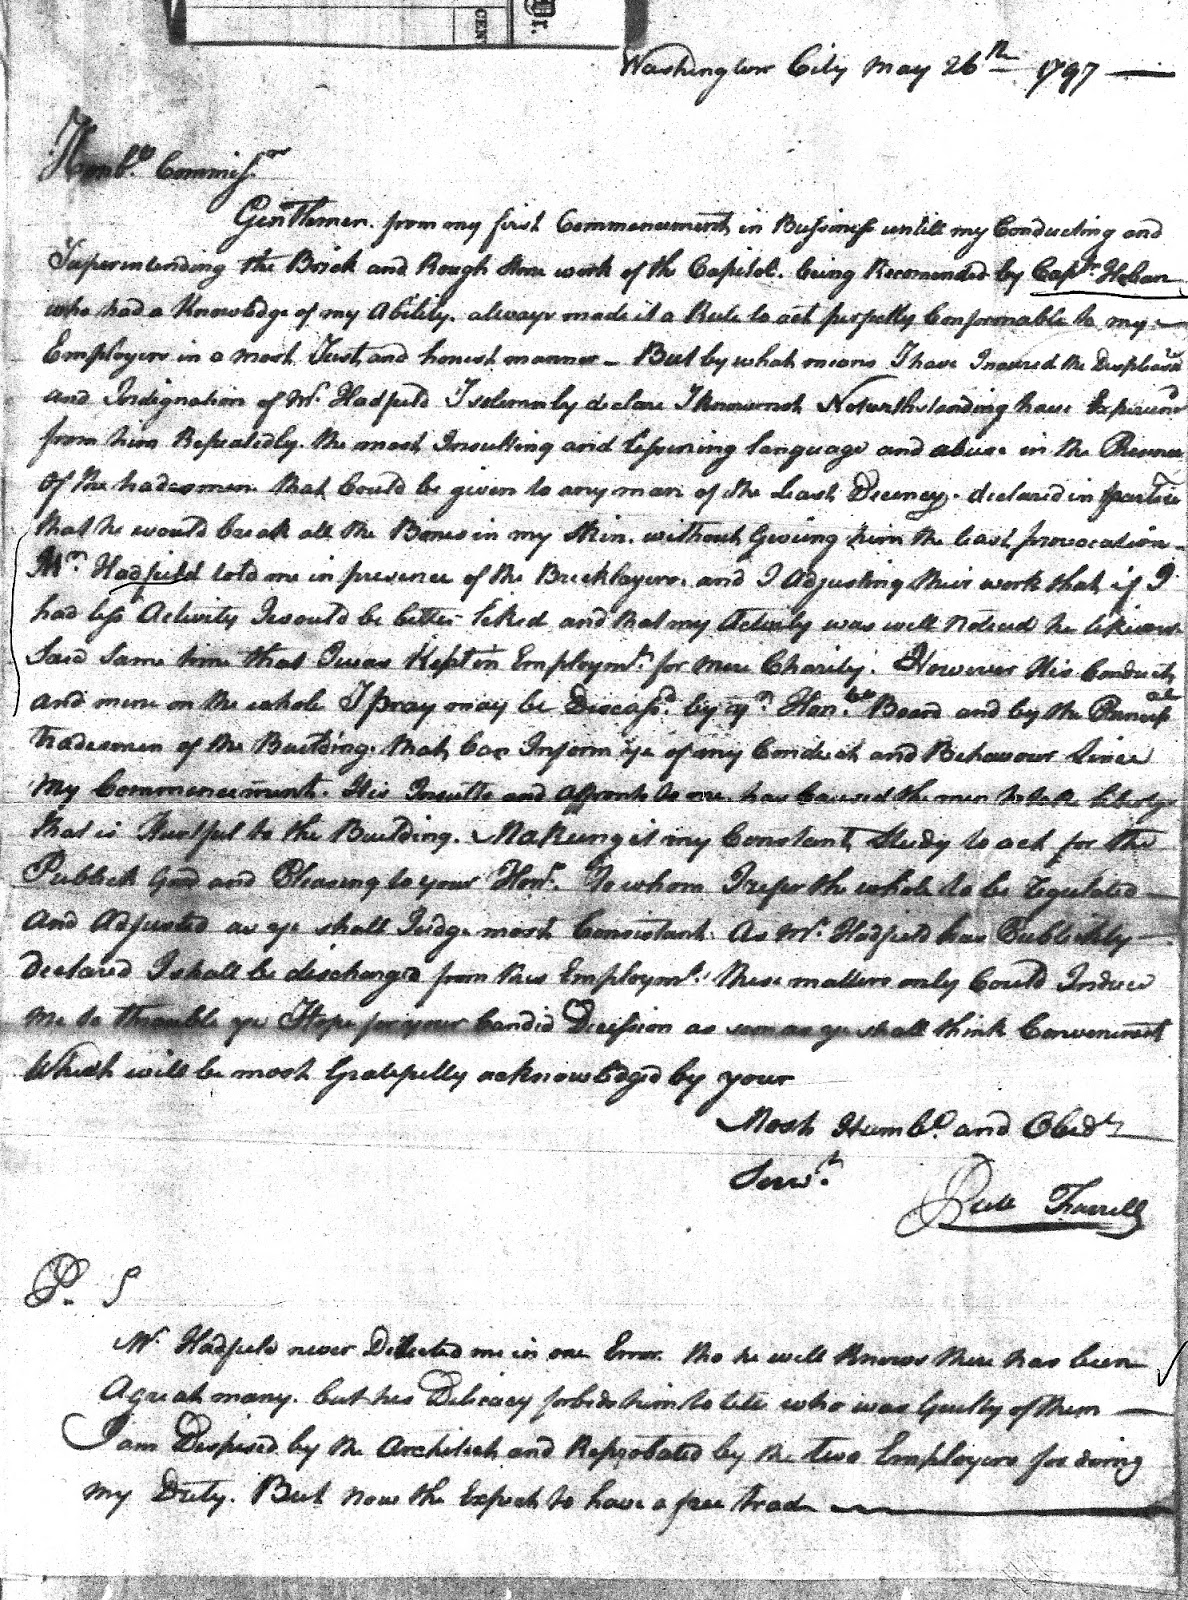 CEN
gr.
Washington City May 26th 1797
Honble. Commissrs
Gentlemen. from my first Commencement in Bussiness untill my Conducting and
Superintending the Brick and Rough stone work of the Capitol. being Recomended by Captn. Hoban
who had a Knowledge of my Ability. always made it a Rule to act perfectly Conformable to my
Employers in a most Just and honest manner – But by what means I have Incured the Displeasre
and Indignation of Mr. Hadfield I solemnly declare I know not Notwithstanding have Experiencd
from him Repeatedly. the most Insulting and Lessening language and abuse in the Presence
Of the tradesmen that Could be given to any man of the Least Decency. declared in
that he would break all the Bones in my Skin. without Giveing him the least provocation –
Mr. Hadfield told me in presence of the Bricklayers. and I Adjusting their work that if I
had less Activity I would be better liked and that my Activity was well Noticed he likewise
Said Same time that I was Kept in Employmt. for mere Charity. However His Conduct
and mine on the whole I pray may be Discussd. by yr. Honble. Board and by the Princpl
tradesmen of the Building. that Can Inform ye of my Conduct and Behavour Since
My Commencement. His Insults and Affronts to me has Caused the men to take liberty
that is Hurtful to the Building. Makeing it my Constant Study to act for the
Publick Good and Pleasing to your Honrs. To whom I refer the whole to be regulated
And Adjusted as ye shall Judge most Consistant. As Mr. Hadfield has Publickly
declared I shall be discharged from this Employmt. these matters only Could Induce
Me to throuble ye Hope for your Candid Decission as soon as ye shall think Conveniant
Which will be most Gratefully acknowledged by your
Most Humbe. and Obedt
Servt.
Farrell
P. S
Mr. Hadfield never Detected me in one Error. tho he well Knows there has been
A great many. but his Delicacy forbids him to tell who was Guilty of them
I am Despised by the Architect and Reprobated by the two Employers for doing
my Duty. But now the Expect to have a free trade